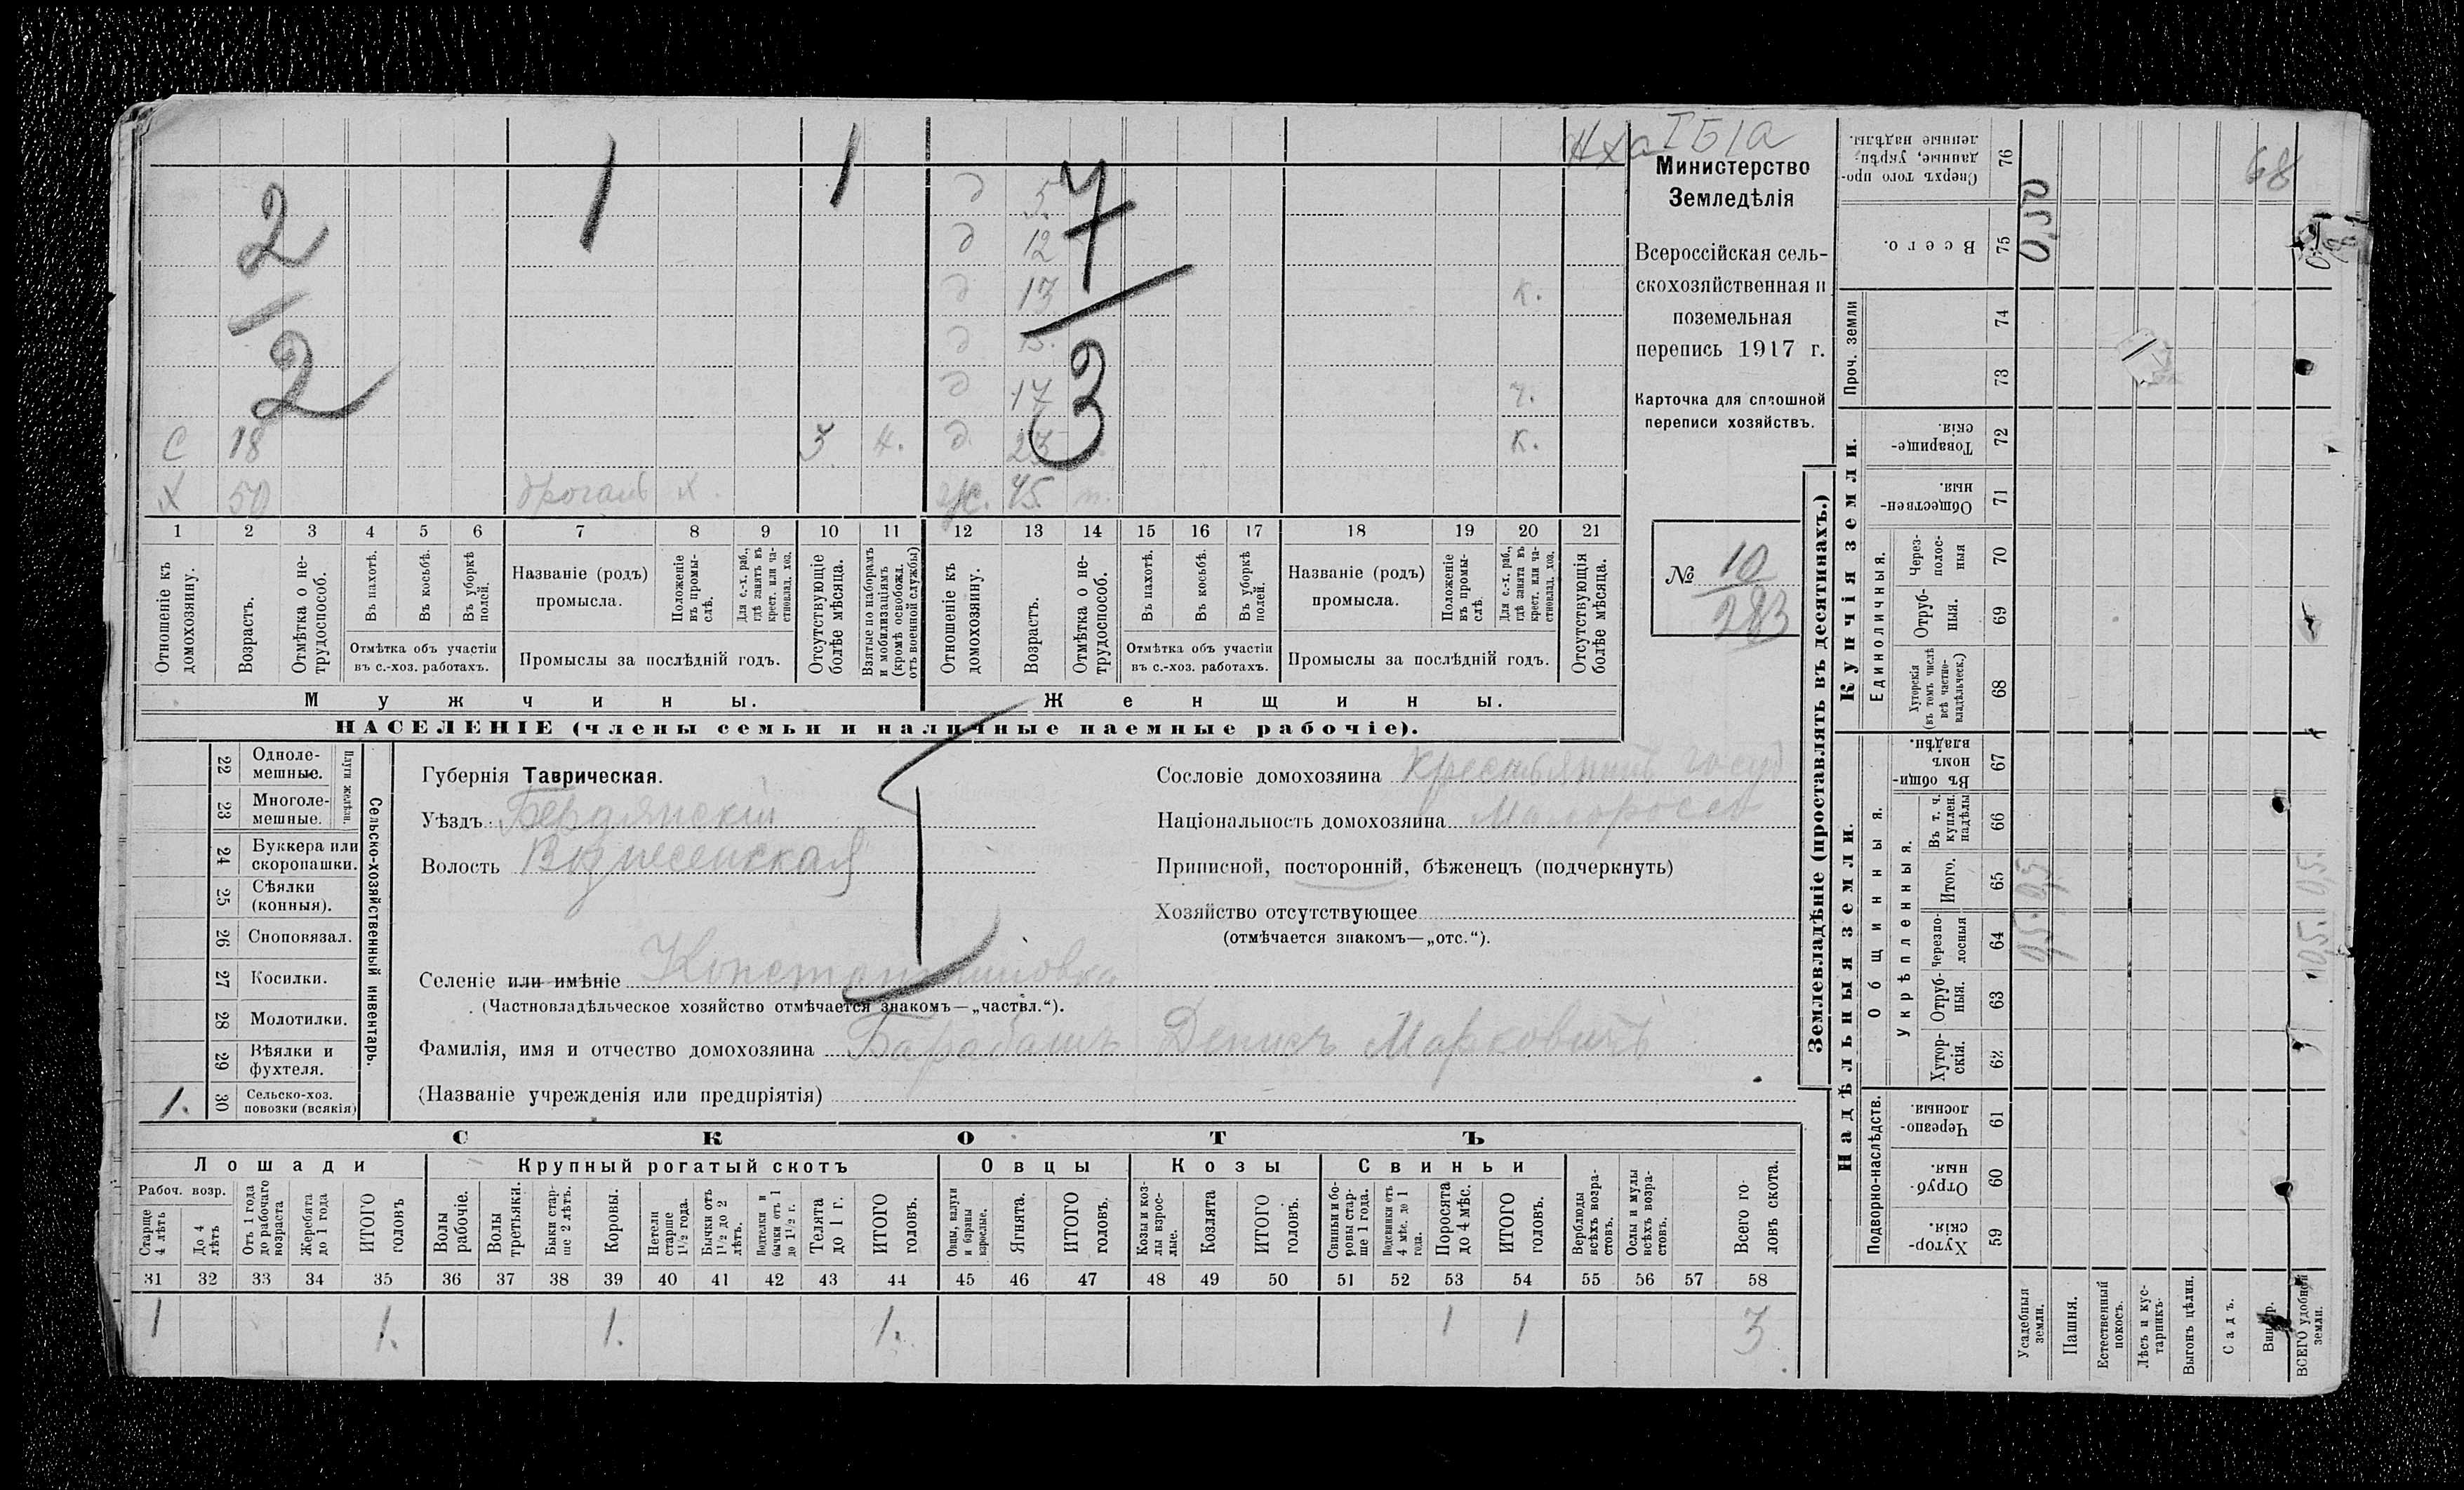 2
2
1
1
7
3
д 5.
д 12
д 13 к.
д 15.
д 17 г.
С 18 3 д. 23 к.
Х 50 Х. ж. 45 п.
1 2 3 4 5 6 7 8 9 10 11 12 13 14 15 16 17 18 19 20 21
Отношеніе къ домохозяину.
Возрастъ.
Отмѣтка о не-
трудоспособ.
Въ пахотѣ.
Въ косьбѣ.
Въ уборкѣ полей.
Отмѣтка объ участіи
въ с.-хоз. работахъ.
Названіе (родъ)
промысла.
Положеніе
въ промы-
слѣ.
Для с.-х. раб.,
гдѣ занятъ въ
крест. или ча-
стновлад. хоз.
Промыслы за послѣдній годъ.
Отсутствующіе
болѣе мѣсяца.
Взятые по наборамъ
и мобилизаціямъ
(кромѣ освобожд.
отъ военной службы)
Отношеніе къ
домохозяину.
Возрастъ.
Отмѣтка о не-
трудоспособ.
Въ пахотѣ.
Въ косьбѣ.
Въ уборкѣ
полей.
Отмѣтка объ участіи
въ с.-хоз. работахъ.
Названіе (родъ)
промысла.
Положеніе
въ промы-
слѣ.
Для с.-х. раб.,
гдѣ занята въ
крест. или ча-
стновлад. хоз.
Промыслы за послѣдній годъ.
Отсутствующія
болѣе мѣсяца.
Мужчины.
Женщины.
НАСЕЛЕНІЕ (члены семьи и наличные наемные рабочіе).
Министерство
Земледѣлія
Всероссійская сель-
скохозяйственная и
поземельная
перепись 1917 г.
Карточка для сплошной
переписи хозяйствъ.
№ 10
283
22 Одноле-
мешные.
23 Многоле-
мешные.
Плуги желѣзн.
24 Буккера или
скоропашки.
25 Сѣялки
(конныя).
26 Сноповязал.
27 Косилки.
28 Молотилки.
29 Вѣялки и
фухтеля.
1. 30 Сельско-хоз.
повозки (всякія)
Сельско-хозяйственный инвентарь.
Губернія Таврическая.
Уѣздъ Бердянскій
Волость Вознесенская
Селеніе или имѣніе Константиновка
(Частновладѣльческое хозяйство отмѣчается знакомъ—„частвл.“).
Фамилія, имя и отчество домохозяина Барабашъ Денисъ Марковичъ
(Названіе учрежденія или предпріятія)
Сословіе домохозяина крестьянинъ госуд
Національность домохозяина Малороссъ
Приписной, посторонній, бѣженецъ (подчеркнуть)
Хозяйство отсутствующее
(отмѣчается знакомъ—„отс.“).
СКОТЪ
Лошади
Рабоч. возр.
Старше
4 лѣтъ
До 4
лѣтъ
Отъ 1 года
до рабочаго
возраста
Жеребята
до 1 года
ИТОГО
головъ
Крупный рогатый скотъ
Волы
рабочіе.
Волы
третьяки.
Быки стар-
ше 2 лѣтъ.
Коровы.
Нетели
старше
1½ года.
Бычки отъ
1½ до 2
лѣтъ.
Подтелки и
бычки отъ 1
до 1½ г.
Телята
до 1 г.
ИТОГО
головъ.
Овцы
Овцы, валухи
и бараны
взрослые.
Ягнята.
ИТОГО
головъ.
Козы
Козы и коз-
лы взрос-
лые.
Козлята
ИТОГО
головъ.
Свиньи
Свиньи и бо-
ровы стар-
ше 1 года.
Подсвинки отъ
4 мѣс. до 1
года.
Поросята
до 4 мѣс.
ИТОГО
головъ.
Верблюды
всѣхъ возра-
стовъ.
Ослы и мулы
всѣхъ возра-
стовъ.
Всего го-
ловъ скота.
31 32 33 34 35 36 37 38 39 40 41 42 43 44 45 46 47 48 49 50 51 52 53 54 55 56 57 58
1 1. 1. 1. 1 1 3
Землевладѣніе (проставлять въ десятинахъ.)
Надѣльныя земли.
Купчія земли.
Проч. земли
Подворно-наслѣдств.
Общинныя.
Укрѣпленныя.
Единоличныя.
Сверхъ того про-
данные, укрѣп-
ленные надѣлы. 76
Всего. 75 0,50
74
73
Товарище-
скія. 72
Обществен-
ныя. 71
Через-
полос-
ныя 70
Отруб-
ныя. 69
Хуторскія
(въ томъ числѣ
всѣ частно-
владѣльческ.) 68
Въ общин-
номъ
владѣн. 67
Въ т. ч.
куплен.
надѣлы 66
Итого. 65 0,5
Черезпо-
лосныя 64 0,5
Отруб-
ныя. 63
Хутор-
скія. 62
Черезпо-
лосныя. 61
Отруб-
ныя. 60
Хутор-
скія. 59
Усадебныя
земли.
Пашня.
Естественный
покосъ.
Лѣсъ и кус-
тарникъ.
Выгонъ цѣлин.
Садъ.
ВСЕГО удобной
земли.
68
0,5. 0,5.